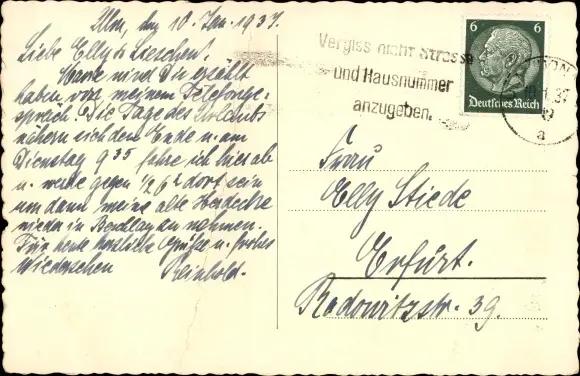 Ulm, den 10. Jan. 1937.
Liebe Elly u. Lieschen!
wird Dir erzählt
haben von meinem Telefonge-
spräch. Die Tage des Urlaubs
nähern sich dem Ende u. am
Dienstag 9 35 fahre ich hier ab
u. werde gegen 1/2 6 h dort sein
um dann meine alte
wieder in zu nehmen.
Für heute herzliche Grüße u. frohes
Wiedersehen Reinhold.
Vergiss nicht Strasse
und Hausnummer
anzugeben.
6 6
Deutsches Reich
10.1.37
a
Frau
Elly Stiede
Erfurt.
Radowitzstr. 39.